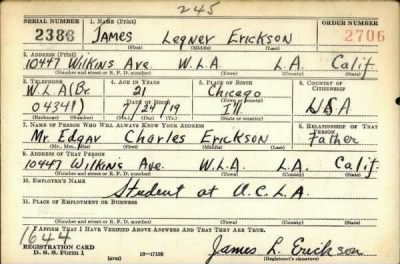 245
SERIAL NUMBER 1. NAME (Print) ORDER NUMBER
2386 James Legner Erickson 2706
(First) (Middle) (Last)
2. ADDRESS (Print)
10447 Wilkins Ave. W.L.A L.A. Calif
(Number and street or R. F. D. number) (Town) (County) (State)
3. TELEPHONE 4. AGE IN YEARS 5. PLACE OF BIRTH 6. COUNTRY OF CITIZENSHIP
W.L.A(Br. 21 Chicago
DATE OF BIRTH (Town or county)
04341) 7/24/19 Ill U.S.A
(Exchange) (Number) (Mo.) (Day) (Yr.) (State or country)
7. NAME OF PERSON WHO WILL ALWAYS KNOW YOUR ADDRESS 8. RELATIONSHIP OF THAT PERSON
Mr. Edgar Charles Erickson Father
(Mr., Mrs., Miss) (First) (Middle) (Last)
9. ADDRESS OF THAT PERSON
10447 Wilkins Ave. W.L.A. L.A. Calif.
(Number and street or R. F. D. number) (Town) (County) (State)
10. EMPLOYER'S NAME
Student at U.C.L.A.
11. PLACE OF EMPLOYMENT OR BUSINESS
(Number and street or R. F. D. number) (Town) (County) (State)
I AFFIRM THAT I HAVE VERIFIED ABOVE ANSWERS AND THAT THEY ARE TRUE.
1644
REGISTRATION CARD
D. S. S. Form 1 (over) 16-17105 James L. Erickson
(Registrant's signature)